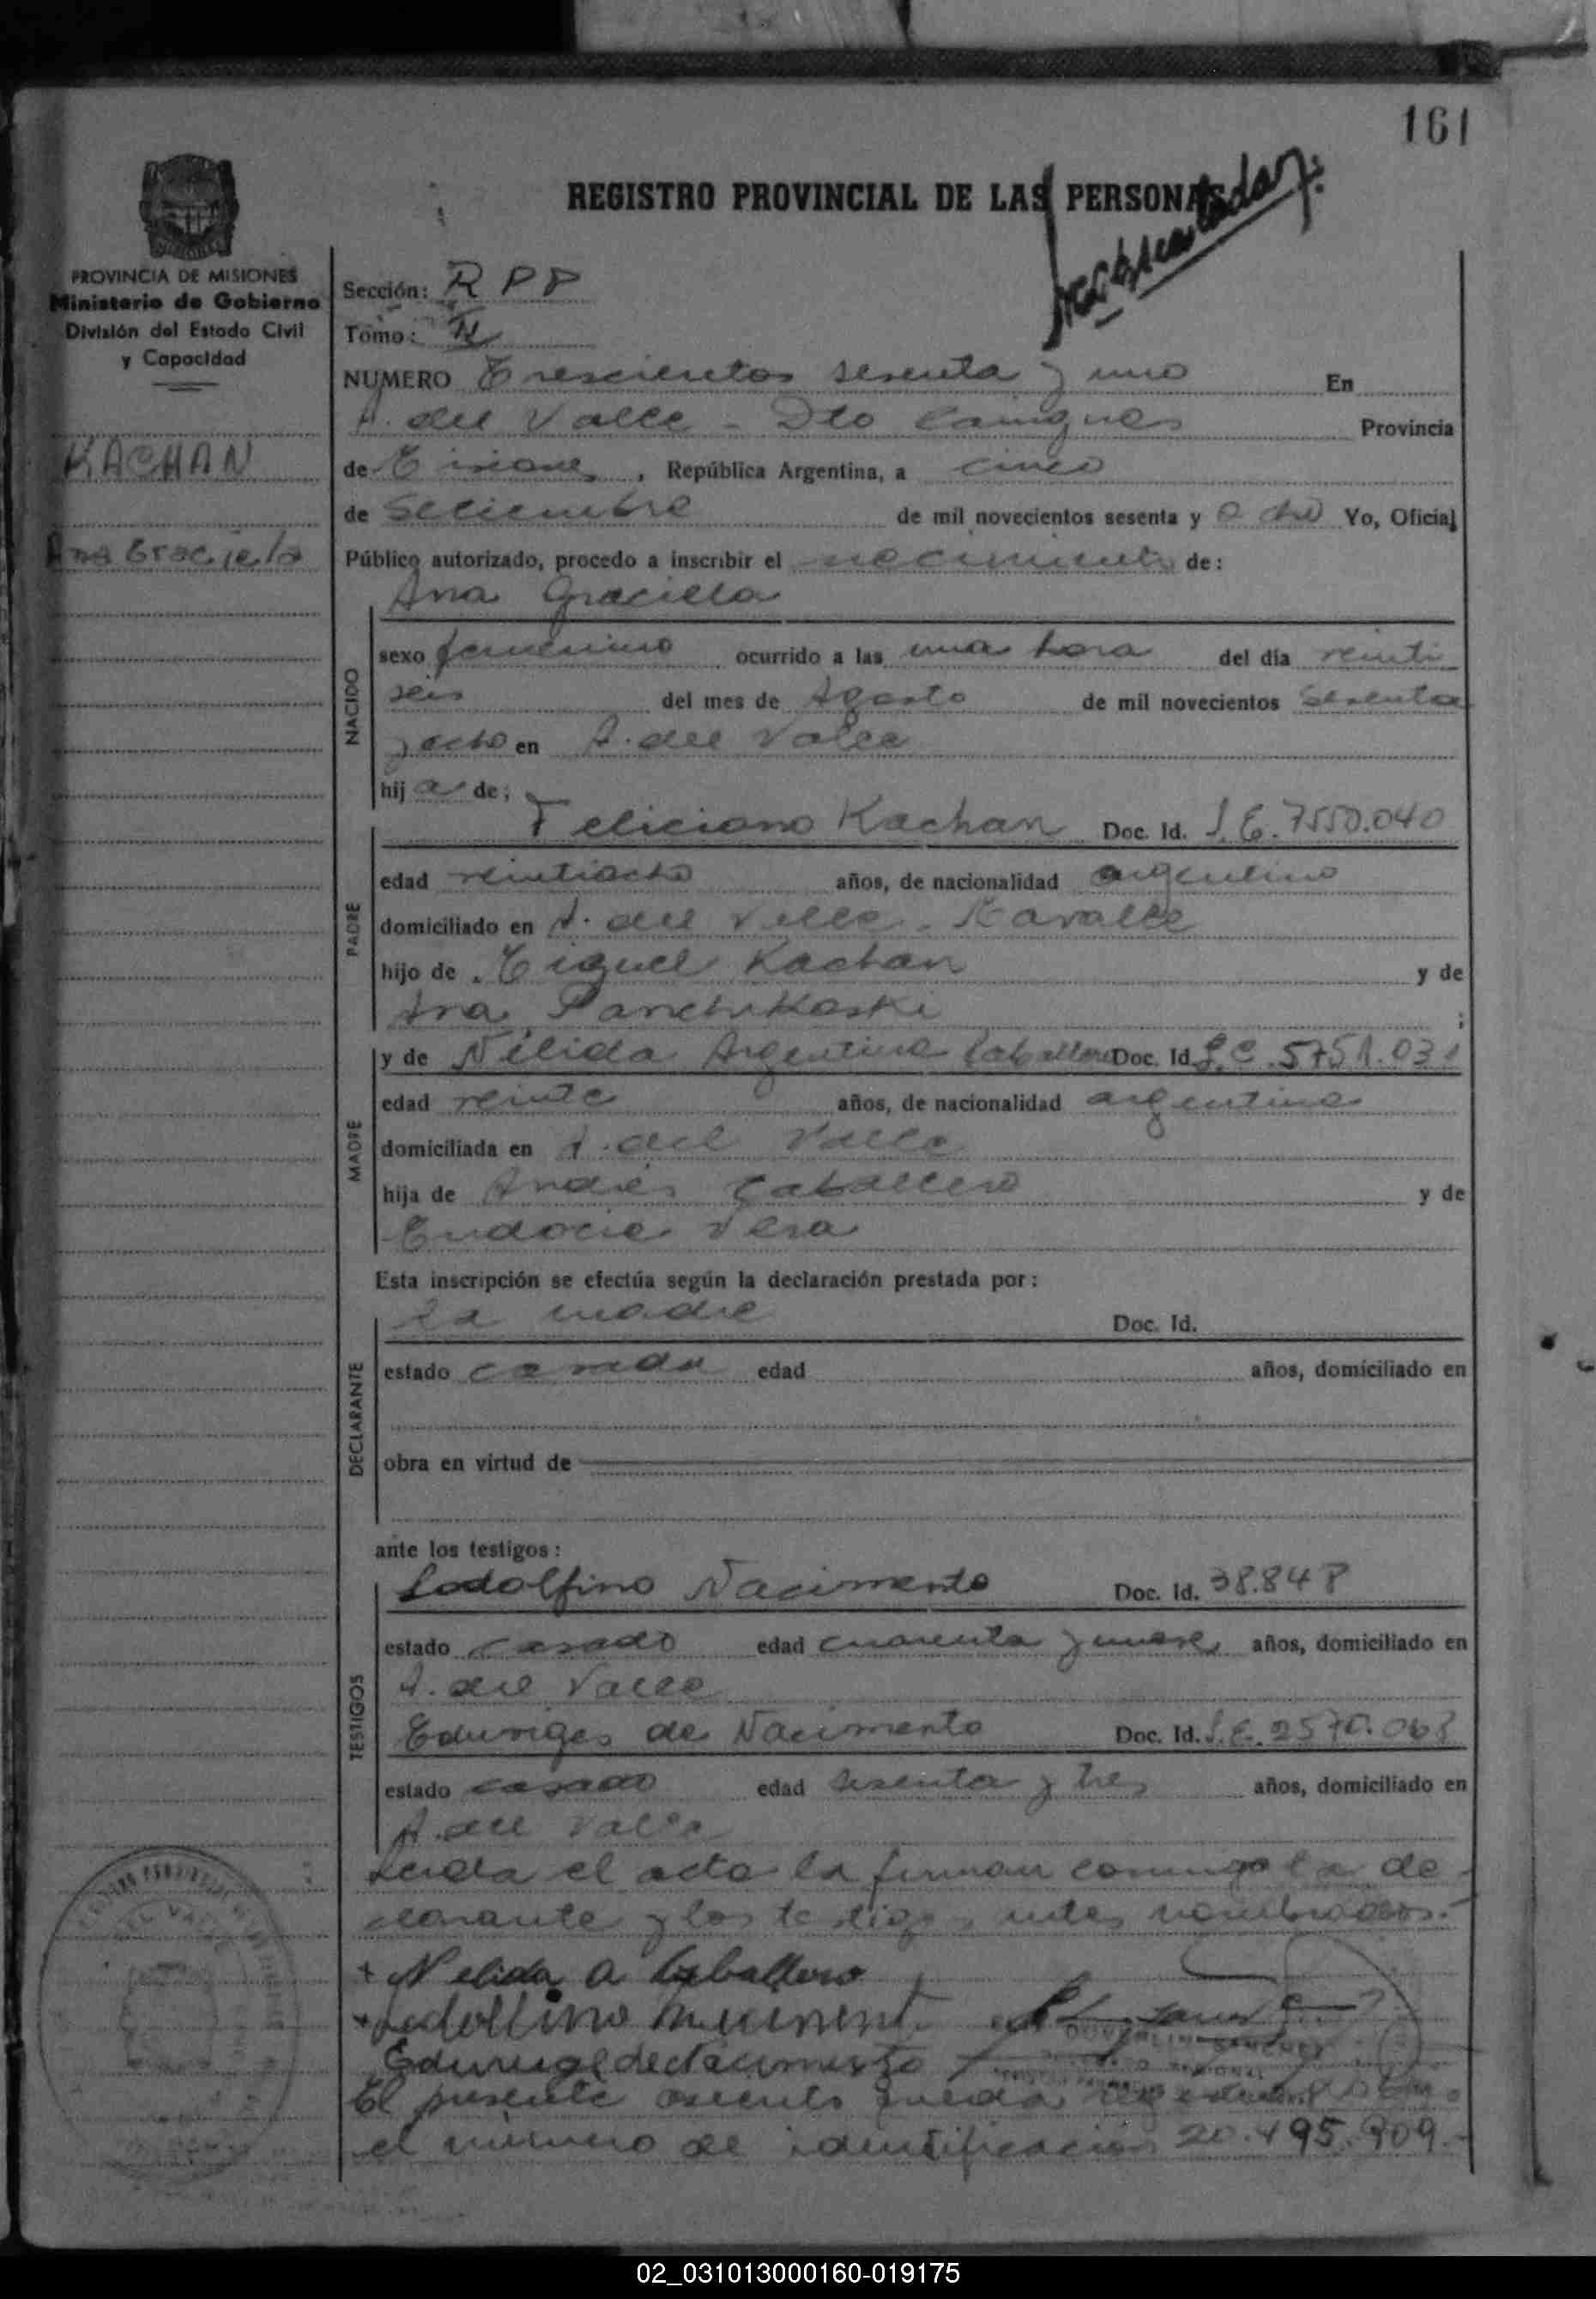 161
REGISTRO PROVINCIAL DE LAS PERSONAS
PROVINCIA DE MISIONES
Ministerio de Gobierno
División del Estado Civil
y Capacidad
KACHAN
Ana Graciela
Sección: R P P
Tomo: II
NUMERO Trescientos sesenta y uno En
A. del Valle - Dto Cainguas Provincia
de Misiones, República Argentina, a cinco
de Setiembre de mil novecientos sesenta y ocho Yo, Oficial
Público autorizado, procedo a inscribir el nacimiento de:
Ana Graciela
NACIDO
sexo femenino ocurrido a las una hora del día veinti
seis del mes de Agosto de mil novecientos sesenta
y ocho en A. del Valle
hija de;
PADRE
Feliciano Kachan Doc. Id. L.E. 7550.040
edad veintiocho años, de nacionalidad argentino
domiciliado en A. del Valle
hijo de Miguel Kachan y de
Ana Panchikoski ;
MADRE
y de Nélida Argentina Caballero Doc. Id. L.C. 5751.031
edad veinte años, de nacionalidad argentina
domiciliada en A. del Valle
hija de Andrés Caballero y de
Eudocia Vera
Esta inscripción se efectúa según la declaración prestada por:
DECLARANTE
la madre Doc. Id.
estado casada edad años, domiciliado en
obra en virtud de
ante los testigos:
TESTIGOS
Lodolfino Nacimento Doc. Id. 38.848
estado casado edad cuarenta y nueve años, domiciliado en
A. del Valle
Eduviges de Nacimento Doc. Id. L.E. 2570.063
estado casado edad sesenta y tres años, domiciliado en
A. del Valle
Leida el acta la firman conmigo la de-
clarante y los testigos antes nombrados.-
+ Nelida A Caballero
+ Lodolfino
Eduvige de Nacimento
El presente asiento queda
el número de identificación 20.495.909.-
02_031013000160-019175